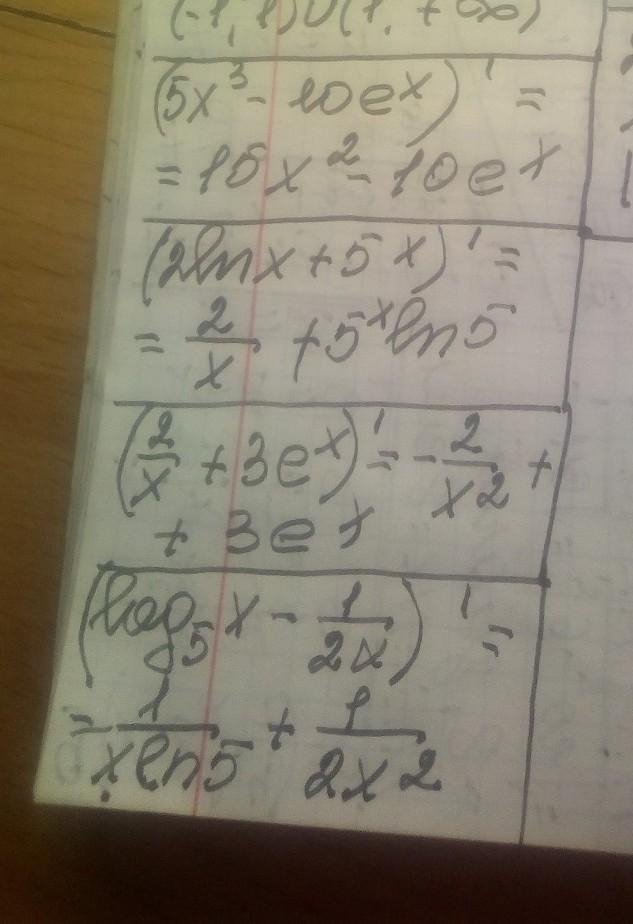 (-1, 1)∪(1, +∞)
(5x³ - 10eˣ)' =
= 15x² - 10eˣ
(2lnx + 5ˣ)' =
= 2/x + 5ˣln5
(2/x + 3eˣ)' = -2/x² +
+ 3eˣ
(log₅x - 1/2x)' =
= 1/xln5 + 1/2x²